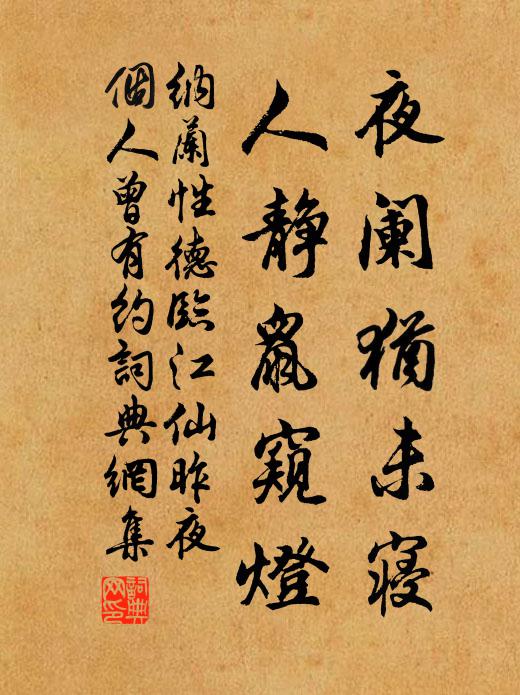 夜阑猶未寝
人静鼠窺燈
納蘭性德臨江仙昨夜
個人曽有約詞典網集
詞典网印